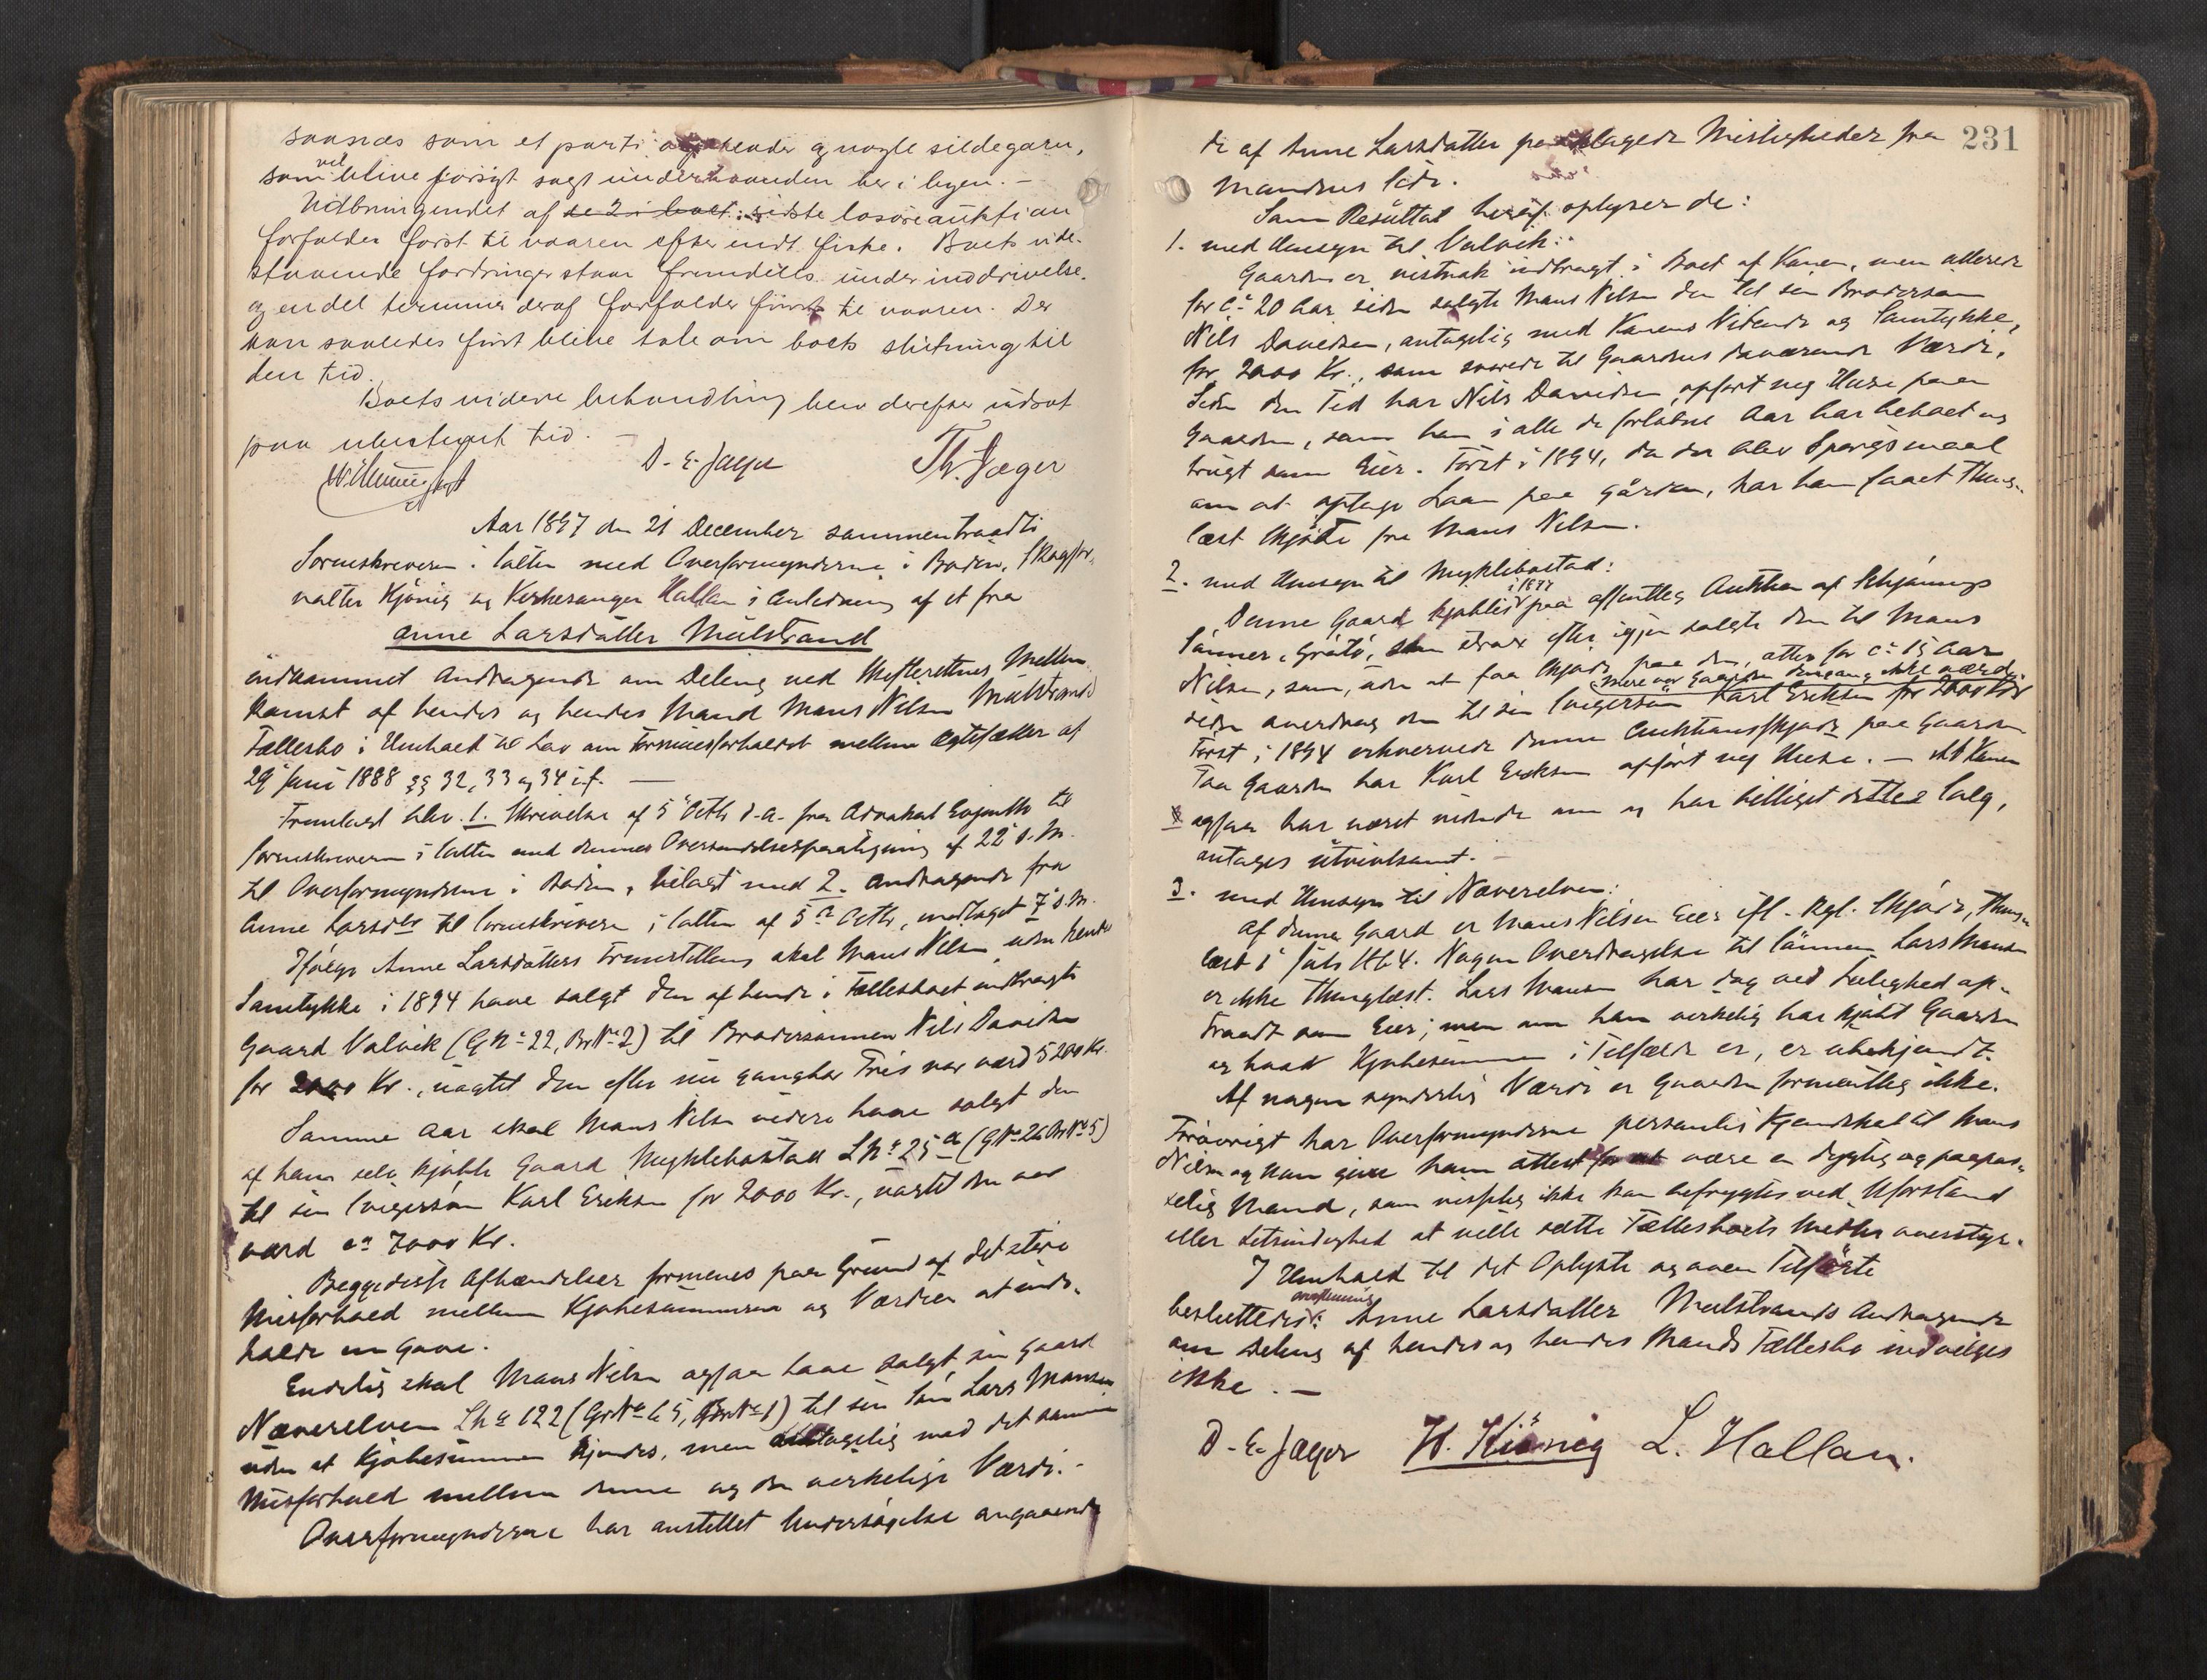 saanæs som et parti og nogle sildegarn,
som vil blive forsøgt solgt underhaanden her i byen. –
Udbringendet af de 2 i boet sidste løsøreauktion
forfalder først til vaaren efter endt fiske. Boets ude-
staaende fordringer staar fremdeles under inddrivelse.
og en del terminer deraf forfalder først til vaaren. Der
kan saaledes først blive tale om boets slutning til
den tid.
Boets videre behandling blev derefter udsat
paa ubestemt tid. –
D. E. Jæger Th. Jæger
Aar 1897 den 21 December sammentraadte
Sorenskriveren i Salten med Overformynderne i Bodin, Skogfor-
valter Kjönig og Kirkesanger Hallan i Anledning af et fra
Anne Larsdatter Mulstrand
indkommet Andragende om Deling ved Skifterettens Mellem-
komst af hendes og hendes Mand Mons Nilsen Mulstrands
Fællesbo i Henhold til Lov om Formuesforholdet mellem Ægtefæller af
29 Juni 1888 §§ 32, 33 og 34 i. f. —
Fremlagt blev 1. Skrivelse af 5 Octbr d. A. fra Advokat Evjenth til
Sorenskriveren i Salten med dennes Oversendelsespaategning af 22 s. M.
til Overformynderne i Bodin, bilagt med 2. Andragende fra
Anne Larsdtr til Sorenskriveren i Salten af 5te Octbr, modtaget 7 s. M.
Ifølge Anne Larsdatters Fremstilling skal Mons Nilsen uden hendes
Samtykke i 1894 have solgt den af hende i Fællesboet indbragte
Gaard Valvik (G.No 22, Br.No 2) til Brodersønnen Nils Davidsen
for 2000 Kr., uagtet den efter nu gangbar Pris var værd 5200 Kr.
Samme Aar skal Mons Nilsen videre have solgt den
af ham selv kjøbte Gaard Myklebostad LNo 25a (GNo 26 BrNo 5)
til sin Svigersøn Karl Eriksen for 2000 Kr., uagtet den var
værd ca 7000 Kr.
Beggedisse Afhændelser formenes paa Grund af det store
Misforhold mellem Kjøbesummerne og Værdien at inde-
holde en Gave.
Endelig skal Mons Nilsen ogsaa have solgt sin Gaard
Næverelven LNo 122 (GrNo 65, BrNo 1) til sin Søn Lars Monsen
uden at Kjøbesummen kjendes, men antagelig med det samme
Misforhold mellem denne og den virkelige Værdi. –
Overformynderne har anstillet Undersøgelse angaaende
231
de af Anne Larsdatter paaklagede Misligheder fra
Mandens Side.
Som Resultat heraf oplyser de:
1. med Hensyn til Valvik:
Gaarden er vistnok indbragt i Boet af Konen, men allerede
for ca 20 Aar siden solgte Mons Nilsen den til sin Brodersøn
Nils Davidsen, antagelig med Konens Vidende og Samtykke,
for 2000 Kr., som svarede til Gaardens daværende Værdi.
Siden den Tid har Nils Davidsen opført nye Huse paa
Gaarden, som han i alle de forløbne Aar har beboet og
brugt som Eier. Først i 1894, da der blev Spørgsmaal
om at optage Laan paa Gården, har han faaet Thing-
læst Skjøde fra Mons Nilsen.
2. med Hensyn til Myklebostad:
Denne Gaard kjøbtes i 1877 paa offentlig Auktion af Schjønings
Sønner, Gråtø, som strax efter igjen solgte den til Mons
Nilsen, som, uden at faa Skjøde paa den, atter for ca 15 Aar
siden overdrog den til sin Svigersøn Karl Eriksen for 2000 Kr.
(mere var Gaarden dengang ikke værd).
Først i 1894 erhvervede denne Auktionsskjøde paa Gaarden
Paa Gaarden har Karl Eriksen opført nye Huse. — At Konen
ogsaa har været vidende om og har billiget dette Salg,
antages utvivlsomt. –
3. med Hensyn til Næverelven:
Af denne Gaard er Mons Nilsen Eier ifl. Kgl. Skjøde, Thing-
læst i Juli 1864. Nogen Overdragelse til Sønnen Lars Monsen
er ikke Thinglæst. Lars Monsen har dog ved Leilighed op-
traadt som Eier; men om han virkelig har kjøbt Gaarden
og hvad Kjøbesummen i Tilfælde er, er ubekjendt.
Af nogen synderlig Værdi er Gaarden formentlig ikke.
Forøvrigt har Overformynderne personlig Kjendskab til Mons
Nilsen og kan give ham Attest for at være en dygtig og paapas-
selig Mand, som visselig ikke kan befrygtes ved Uforstand
eller Letsindighed at ville sætte Fællesboets Midler overstyr.
I Henhold til det Oplyste og oven Tilførte
besluttedes enstemmig: Anne Larsdatter Mulstrands Andragende
om Deling af hendes og hendes Mands Fællesbo indvilges
ikke. —
D. E. Jæger H. Kiönig L. Hallan.